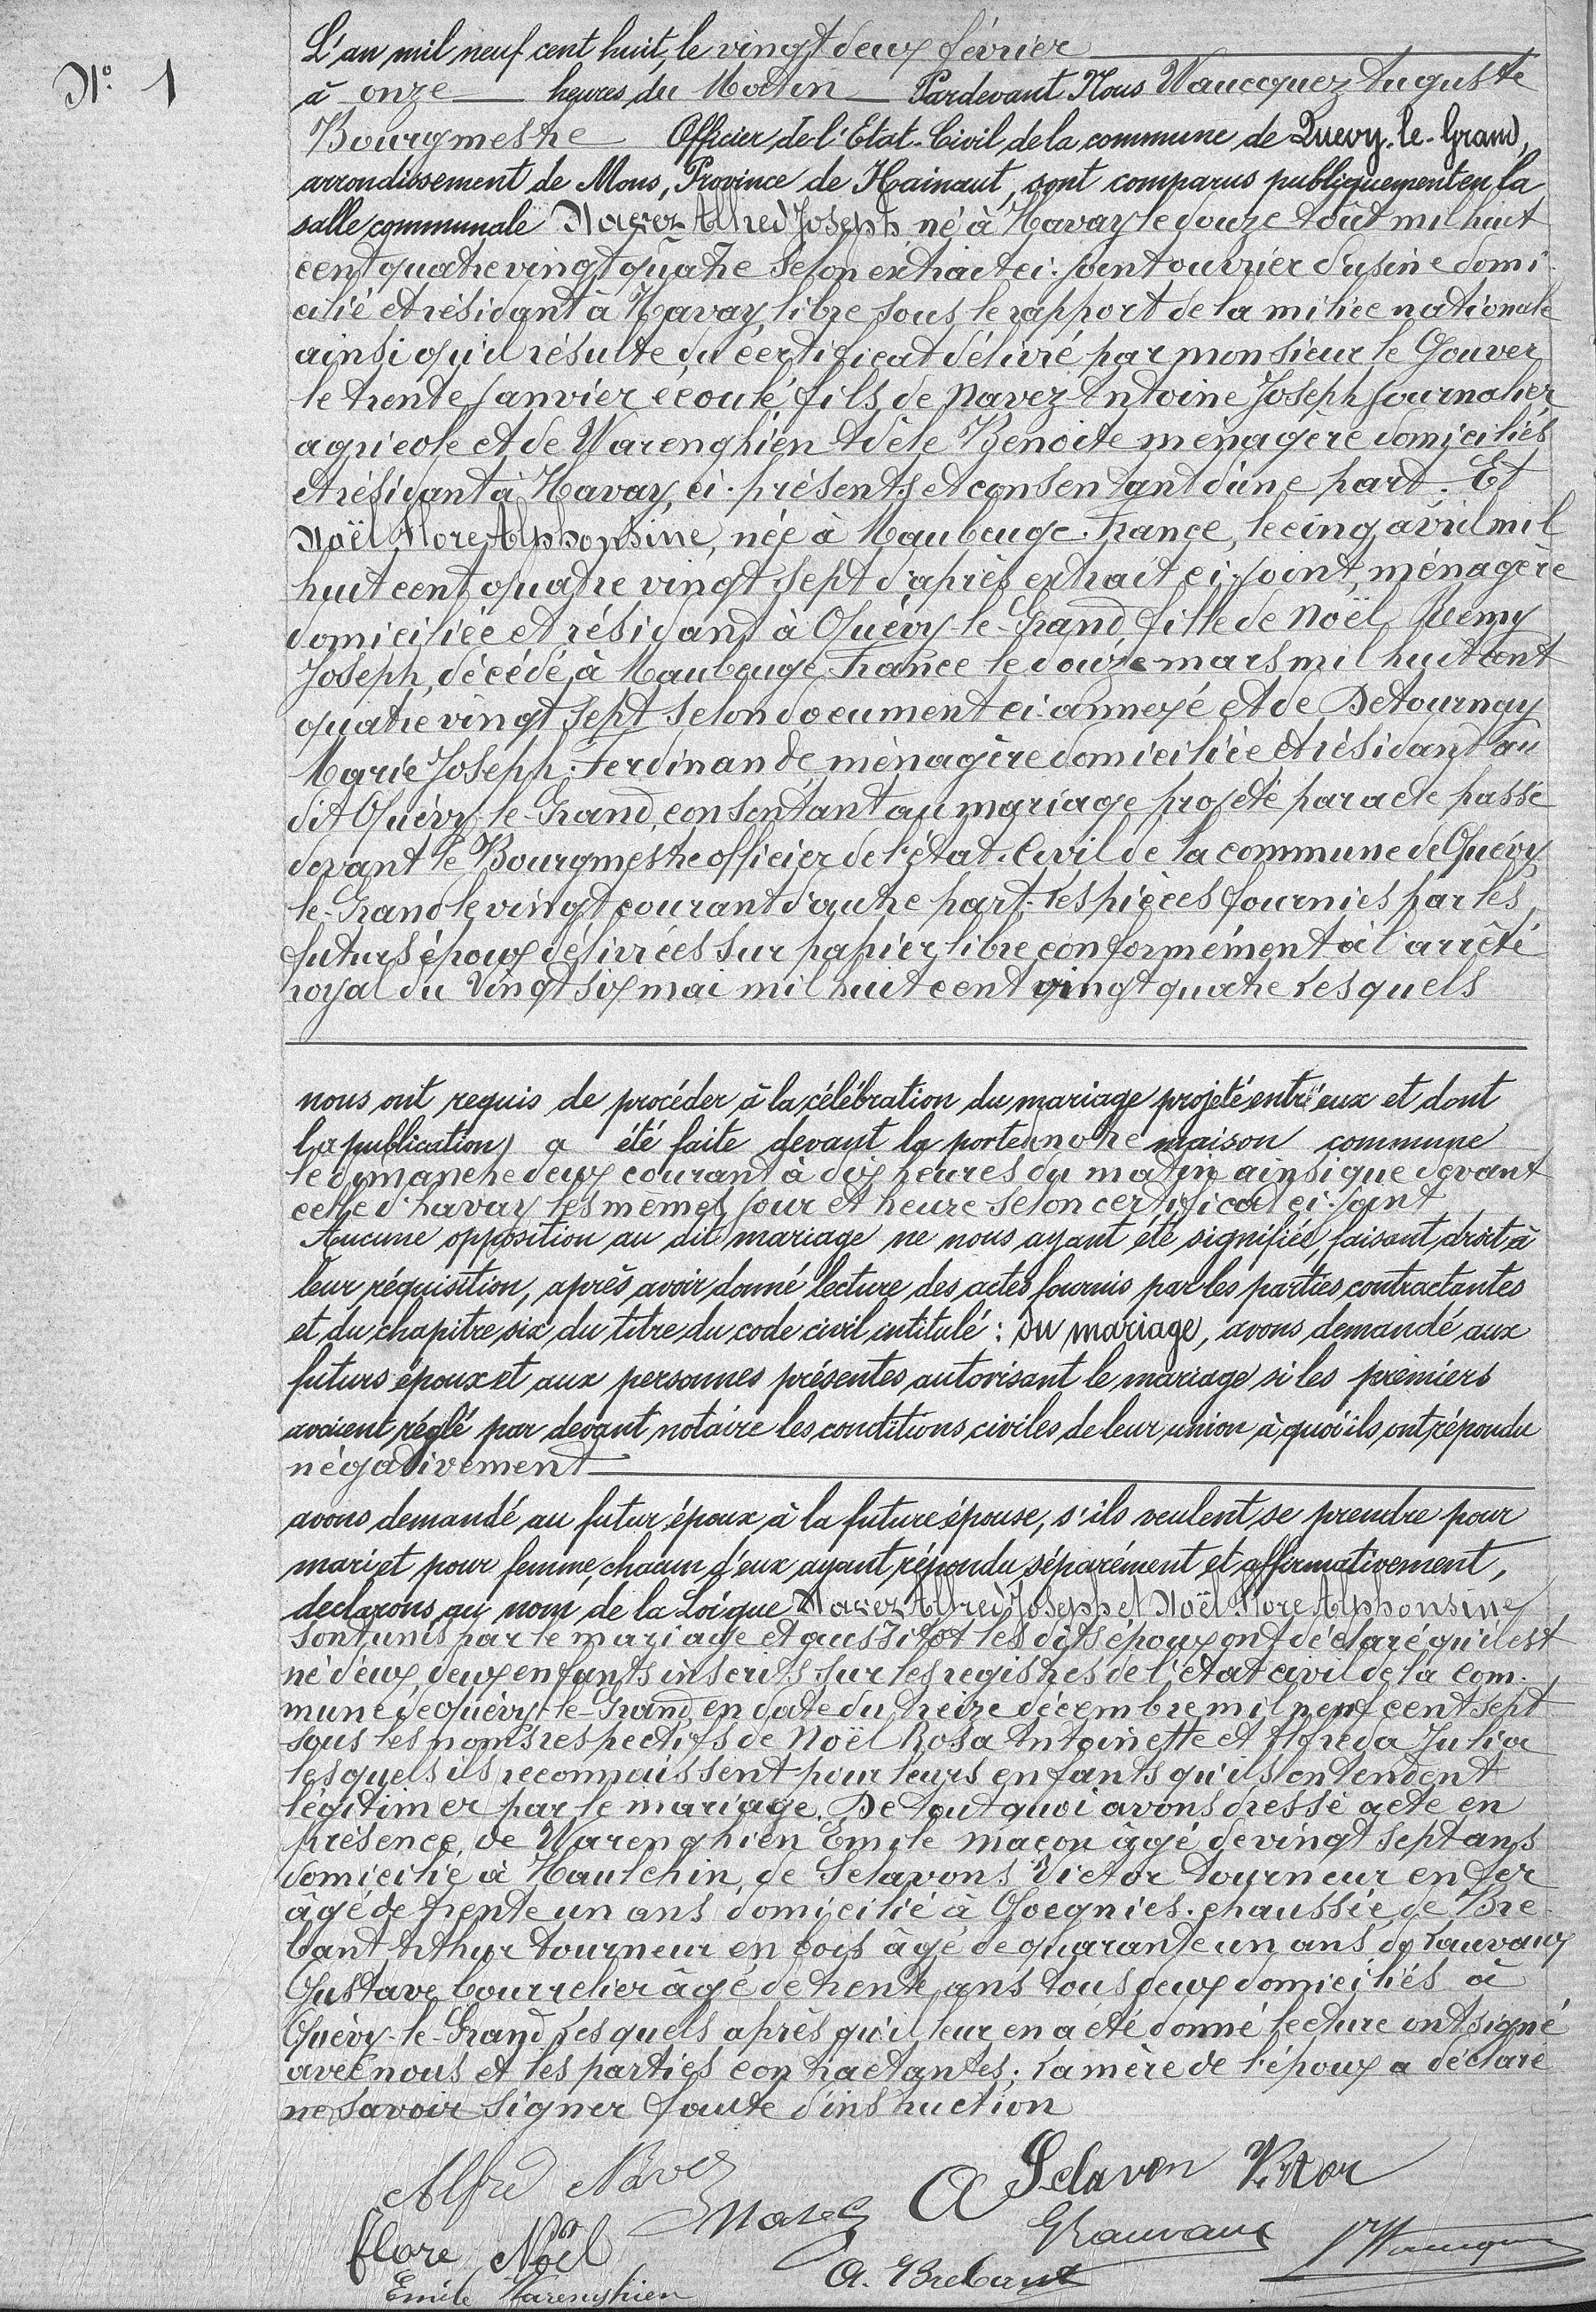 N° 1
L'an mil neuf cent huit, le vingt deux février
à onze heures du Matin Pardevant Nous Waucquez Auguste
Bourgmestre Officier de l'Etat-Civil de la commune de Quévy-le-Grand,
arrondissement de Mons, Province de Hainaut, sont comparus publiquement en la
salle communale Navez Alfred Joseph né à Havay le douze Août mil huit
cent quatre vingt quatre selon extrait ci-joint ouvrier d'usine domi-
cilié et résidant à Havay, libre sous le rapport de la milice nationale
ainsi qu'il résulte du certificat délivré par monsieur le Gouver
le trente janvier écoulé, fils de Navez Antoine Joseph journalier
agricole et de Warenghien Adèle Benoite ménagère domiciliés
et résidant à Havay, ci-présents et consentant d'une part. Et
Noël Flore Alphonsine, née à Maubeuge-France, le cinq avril mil
huit cent quatre vingt sept d'après extrait ci-joint, ménagère
domiciliée et résidant à Quévy-le-Grand, fille de Noël Remy
Joseph, décédé à Maubeuge-France le douze mars mil huit cent
quatre vingt sept selon document ci-annexé et de Detournay
Marie Joseph Ferdinande, ménagère domiciliée et résidant au
dit Quévy-le-Grand, consentant au mariage projeté par acte passé
devant le Bourgmestre officier de l'état-Civil de la commune de Quévy
le-Grand le vingt courant d'autre part. Les pièces fournies par les
futurs époux délivrées sur papier libre conformément à l'arrêté
royal du vingt six mai mil huit cent vingt quatre Lesquels
nous ont requis de procéder à la célébration du mariage projeté entr'eux et dont
la publication a été faite devant la porte de notre maison commune
le dimanche deux courant à dix heures du matin ainsi que devant
celle d'havay les mêmes jour et heure selon certificat ci-joint
Aucune opposition au dit mariage ne nous ayant été signifiée, faisant droit à
leur réquisition, après avoir donné lecture des actes fournis par les parties contractantes
et du chapitre six du titre du code civil intitulé : Du mariage, avons demandé aux
futurs époux et aux personnes présentes autorisant le mariage si les premiers
avaient réglé par devant notaire les conditions civiles de leur union à quoi ils ont répondu
négativement
avons demandé au futur époux à la future épouse, s'ils veulent se prendre pour
mari et pour femme, chacun d'eux ayant répondu séparément et affirmativement,
declarons au nom de la Loi que Navez Alfred Joseph et Noël Flore Alphonsine
sont unis par le mariage et aussitôt les dits époux ont déclaré qu'il est
né d'eux, deux enfants inscrits sur les registres de l'état civil de la com-
mune de Quévy-le-Grand, en date du treize décembre mil neuf cent sept
sous les noms respectifs de Noël Rosa Antoinette et Alfreda Julia
lesquels ils reconnaissent pour leurs enfants qu'ils entendent
légitimer par le mariage. De tout quoi avons dressé acte en
présence, de Warenghien Emile maçon âgé de vingt sept ans
domicilié à Haulchin, de Selavons Victor tourneur en fer
âgé de trente un ans domicilié à Goegnies-chaussée de Bre-
bant Arthur tourneur en bois âgé de quarante un ans de Lauvaux
Gustave bourrelier âgé de trente ans tous deux domiciliés à
Quévy-le-Grand, Lesquels après qu'il leur en a été donné lecture ont signé
avec nous et les parties contractantes; La mère de l'époux a déclaré
ne savoir signer faute d'instruction
Alfred Navez Navez A Selavon Victor
Flore Noël G Lauvaux
Emile Warenghien A. Brebant